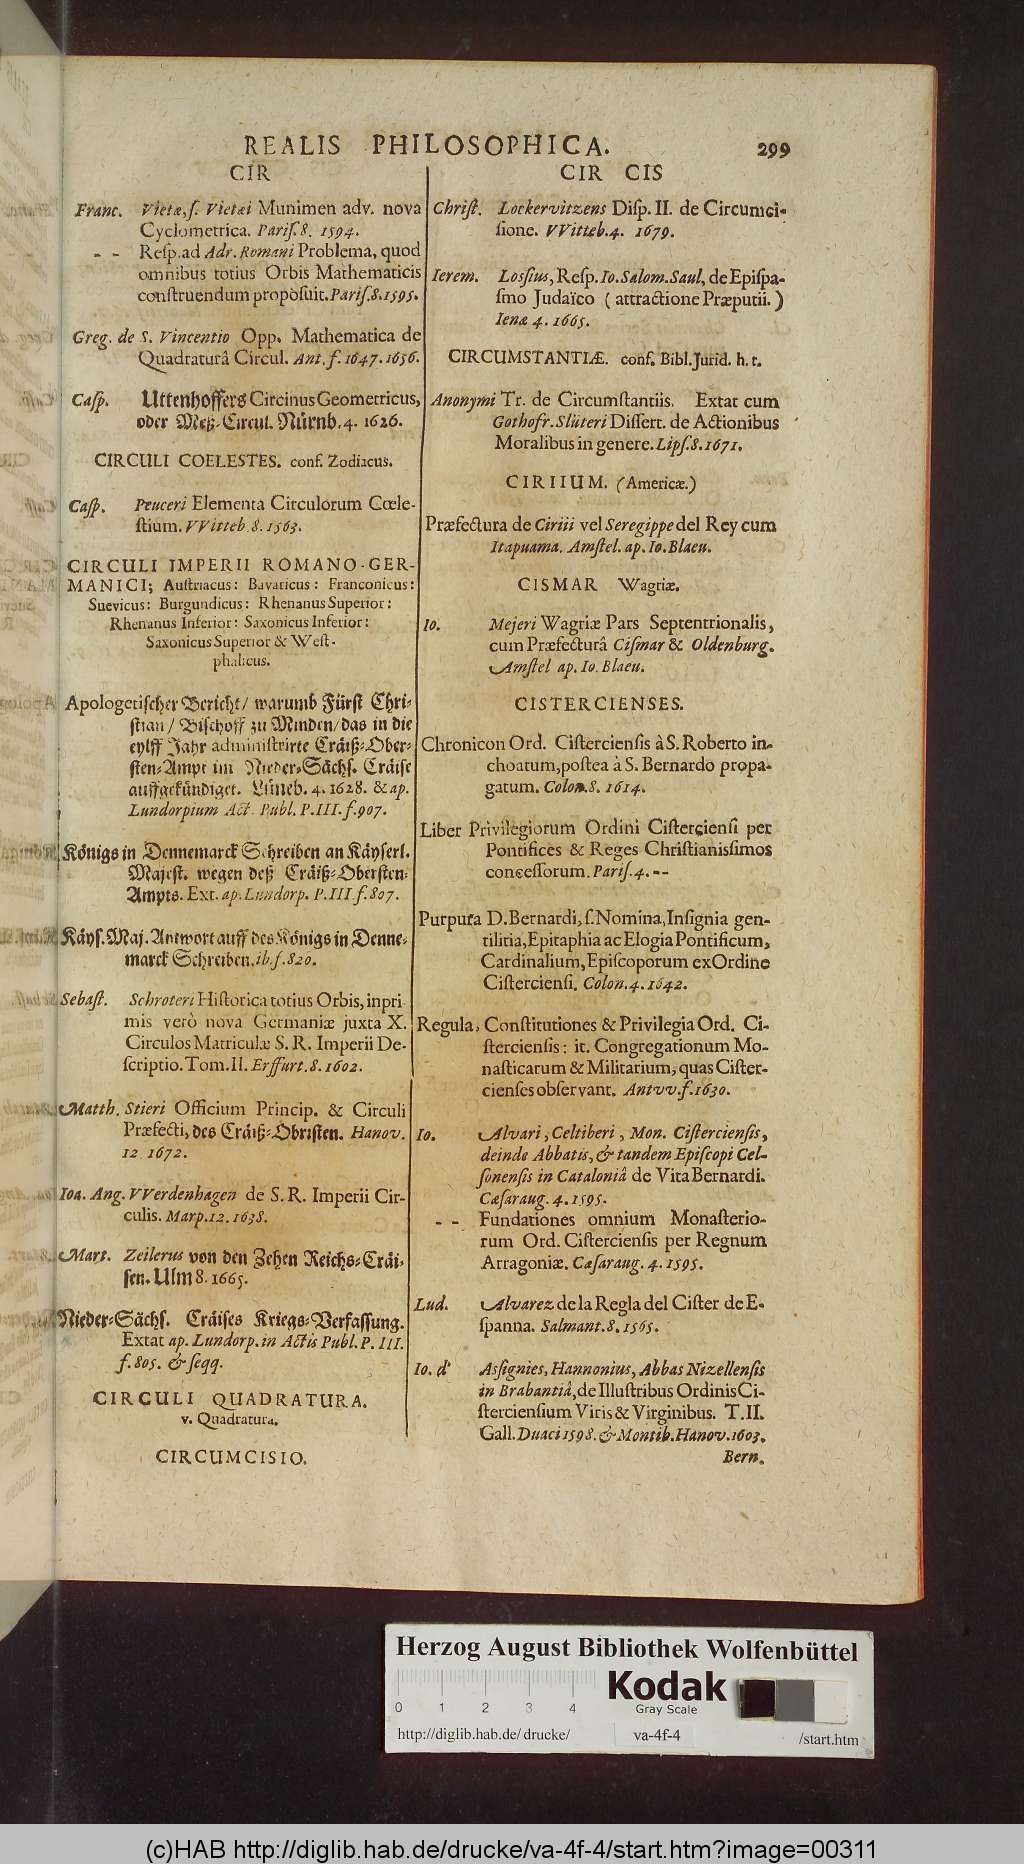 REALIS PHILOSOPHICA. 299
CIR
Franc. Vietæ, ſ. Vietæi Munimen adv. nova
Cyclometrica. Pariſ. 8. 1594.
- - Reſp. ad Adr. Romani Problema, quod
omnibus totius Orbis Mathematicis
conſtruendum propoſuit. Pariſ. 8. 1595.
Greg. de S. Vincentio Opp. Mathematica de
Quadraturâ Circul. Ant. f. 1647. 1656.
Caſp. Uttenhoffers Circinus Geometricus,
oder Meß-Circul. Nürnb. 4. 1626.
CIRCULI COELESTES. conf. Zodiacus.
Caſp. Peuceri Elementa Circulorum Cœle-
ſtium. VVitteb. 8. 1563.
CIRCULI IMPERII ROMANO-GER-
MANICI; Auſtriacus: Bavaricus: Franconicus:
Suevicus: Burgundicus: Rhenanus Superior:
Rhenanus Inferior: Saxonicus Inferior:
Saxonicus Superior & Weſt-
phalicus.
Apologetiſcher Bericht/ warumb Fürſt Chri-
ſtian/ Biſchoff zu Minden/ das in die
eylff Jahr adminiſtrirte Cräiß-Ober-
ſten-Ampt im Nieder-Sächſ. Cräiſe
auffgekündiget. Lüneb. 4. 1628. & ap.
Lundorpium Act. Publ. P. III. f. 907.
Königs in Dennemarck Schreiben an Käyſerl.
Majeſt. wegen deß Cräiß-Oberſten-
Ampts. Ext. ap. Lundorp. P. III. f. 807.
Käyſ. Maj. Antwort auff des Königs in Denne-
marck Schreiben. ib. f. 820.
Sebaſt. Schroteri Hiſtorica totius Orbis, inpri-
mis verò nova Germaniæ juxta X.
Circulos Matriculæ S. R. Imperii De-
ſcriptio. Tom. II. Erffurt. 8. 1602.
Matth. Stieri Officium Princip. & Circuli
Præfecti, des Cräiß-Obriſten. Hanov.
12. 1672.
Ioa. Ang. VVerdenhagen de S. R. Imperii Cir-
culis. Marp. 12. 1638.
Mart. Zeilerus von den Zehen Reichs-Cräi-
ſen. Ulm 8. 1665.
Nieder-Sächſ. Cräiſes Kriegs-Verfaſſung.
Extat ap. Lundorp. in Actis Publ. P. III.
f. 805. & ſeqq.
CIRCULI QUADRATURA.
v. Quadratura.
CIRCUMCISIO.
CIR CIS
Chriſt. Lockervitzens Diſp. II. de Circumci-
ſione. VVitteb. 4. 1679.
Ierem. Loſſius, Reſp. Io. Salom. Saul, de Epiſpa-
ſmo Judaïco (attractione Præputii.)
Ienæ 4. 1665.
CIRCUMSTANTIÆ. conf. Bibl. Jurid. h. t.
Anonymi Tr. de Circumſtantiis. Extat cum
Gothofr. Slüteri Diſſert. de Actionibus
Moralibus in genere. Lipſ. 8. 1671.
CIRIIUM. (Americæ.)
Præfectura de Ciriii vel Seregippe del Rey cum
Itapuama. Amſtel. ap. Io. Blaeu.
CISMAR Wagriæ.
Io. Mejeri Wagriæ Pars Septentrionalis,
cum Præfecturâ Ciſmar & Oldenburg.
Amſtel ap. Io. Blaeu.
CISTERCIENSES.
Chronicon Ord. Ciſtercienſis à S. Roberto in-
choatum, poſtea à S. Bernardo propa-
gatum. Colon. 8. 1614.
Liber Privilegiorum Ordini Ciſtercienſi per
Pontifices & Reges Chriſtianiſſimos
conceſſorum. Pariſ. 4. --
Purpura D. Bernardi, ſ. Nomina, Inſignia gen-
tilitia, Epitaphia ac Elogia Pontificum,
Cardinalium, Epiſcoporum ex Ordine
Ciſtercienſi. Colon. 4. 1642.
Regula, Conſtitutiones & Privilegia Ord. Ci-
ſtercienſis: it. Congregationum Mo-
naſticarum & Militarium, quas Ciſter-
cienſes obſervant. Antvv. f. 1630.
Io. Alvari, Celtiberi, Mon. Ciſtercienſis,
deinde Abbatis, & tandem Epiſcopi Cel-
ſonenſis in Cataloniâ de Vita Bernardi.
Cæſaraug. 4. 1595.
- - Fundationes omnium Monaſterio-
rum Ord. Ciſtercienſis per Regnum
Arragoniæ. Cæſaraug. 4. 1595.
Lud. Alvarez de la Regla del Ciſter de E-
ſpanna. Salmant. 8. 1565.
Io. d' Aſſignies, Hannonius, Abbas Nizellenſis
in Brabantiâ, de Illuſtribus Ordinis Ci-
ſtercienſium Viris & Virginibus. T. II.
Gall. Duaci 1598. & Montib. Hanov. 1603.
Bern.
Herzog August Bibliothek Wolfenbüttel
Kodak
Gray Scale
0 1 2 3 4
http://diglib.hab.de/drucke/ va-4f-4 /start.htm
(c)HAB http://diglib.hab.de/drucke/va-4f-4/start.htm?image=00311